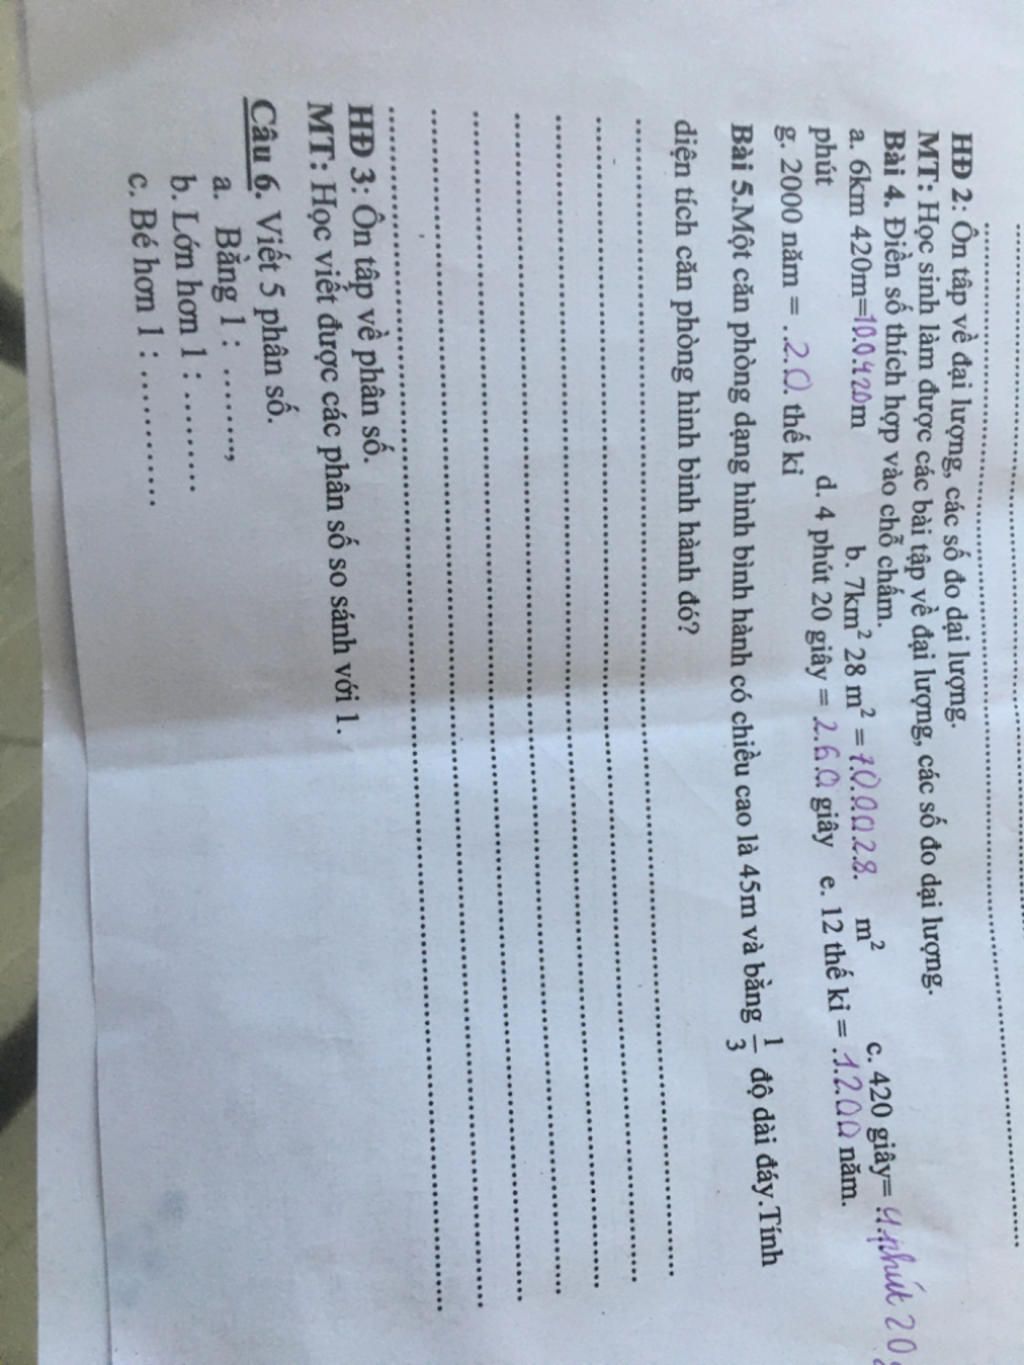 HĐ 2: Ôn tập về đại lượng, các số đo dại lượng.
MT: Học sinh làm được các bài tập về đại lượng, các số đo dại lượng.
Bài 4. Điền số thích hợp vào chỗ chấm.
a. 6km 420m=100420m b. 7km² 28 m² = 700028. m² c. 420 giây= 4 phút 20
phút d. 4 phút 20 giây = 260 giây e. 12 thế ki = 1200 năm.
g. 2000 năm = .20. thế ki
Bài 5.Một căn phòng dạng hình bình hành có chiều cao là 45m và bằng 1/3 độ dài đáy.Tính
diện tích căn phòng hình bình hành đó?
HĐ 3: Ôn tập về phân số.
MT: Học viết được các phân số so sánh với 1.
Câu 6. Viết 5 phân số.
a. Bằng 1 : ........,
b. Lớn hơn 1 : .........
c. Bé hơn 1 : ..........